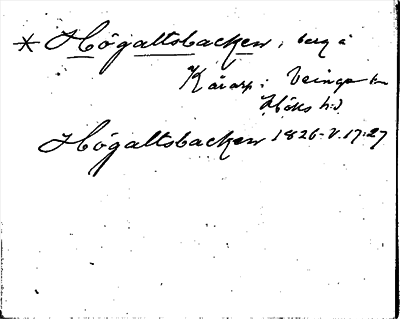 * Högaltsbacken, berg å
Kåarp i Veinge sn
Höks hd
Högaltsbacken 1826-V.17:27